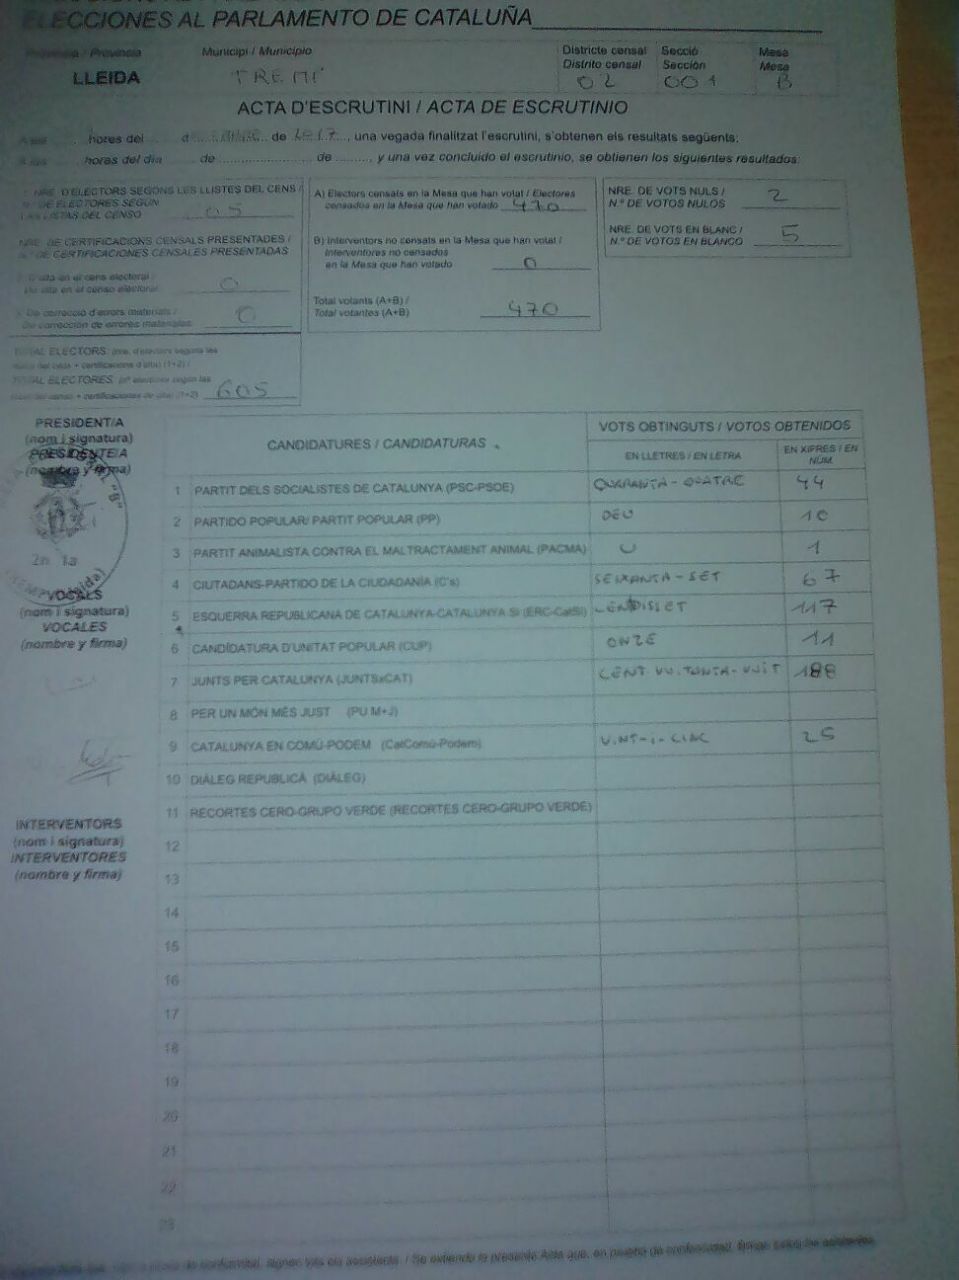 ELECCIONES AL PARLAMENTO DE CATALUÑA
Provincia / Provincia
Municipi / Municipio
Districte censal Secció Mesa
Distrito censal Sección Mesa
LLEIDA TREMP 02 001 B
ACTA D'ESCRUTINI / ACTA DE ESCRUTINIO
hores del d de 2017, una vegada finalitzat l'escrutini, s'obtenen els resultats següents:
horas del día de de, y una vez concluido el escrutinio, se obtienen los siguientes resultados:
NRE. D'ELECTORS SEGONS LES LLISTES DEL CENS /
N.º DE ELECTORES SEGÚN
LAS LISTAS DEL CENSO
NRE. DE CERTIFICACIONS CENSALS PRESENTADES /
N.º DE CERTIFICACIONES CENSALES PRESENTADAS
D'alta en el cens electoral
De alta en el censo electoral 0
De correcció d'errors materials /
De corrección de errores materiales 0
TOTAL ELECTORS: (nre. d'electors segons les
TOTAL ELECTORES: (nº electores según las
605
A) Electors censats en la Mesa que han votat / Electores
censados en la Mesa que han votado 470
B) Interventors no censats en la Mesa que han votat /
Interventores no censados
en la Mesa que han votado 0
Total votants (A+B) /
Total votantes (A+B) 470
NRE. DE VOTS NULS /
N.º DE VOTOS NULOS 2
NRE. DE VOTS EN BLANC /
N.º DE VOTOS EN BLANCO 5
PRESIDENT/A
(nom i signatura)
PRESIDENTE/A
(nombre y firma)
VOCALS
(nom i signatura)
VOCALES
(nombre y firma)
INTERVENTORS
(nom i signatura)
INTERVENTORES
(nombre y firma)
CANDIDATURES / CANDIDATURAS
VOTS OBTINGUTS / VOTOS OBTENIDOS
EN LLETRES / EN LETRA
EN XIFRES / EN
NÚM.
1 PARTIT DELS SOCIALISTES DE CATALUNYA (PSC-PSOE) QUARANTA-QUATRE 44
2 PARTIDO POPULAR/ PARTIT POPULAR (PP) DEU 10
3 PARTIT ANIMALISTA CONTRA EL MALTRACTAMENT ANIMAL (PACMA) U 1
4 CIUTADANS-PARTIDO DE LA CIUDADANÍA (C's) SEIXANTA-SET 67
5 ESQUERRA REPUBLICANA DE CATALUNYA-CATALUNYA SÍ (ERC-CatSí) CENDISSET 117
6 CANDIDATURA D'UNITAT POPULAR (CUP) ONZE 11
7 JUNTS PER CATALUNYA (JUNTSxCAT) CENT VUITANTA-VUIT 188
8 PER UN MÓN MÉS JUST (PUM+J)
9 CATALUNYA EN COMÚ-PODEM (CatComú-Podem) VINT-I-CINC 25
10 DIÀLEG REPUBLICÀ (DIÀLEG)
11 RECORTES CERO-GRUPO VERDE (RECORTES CERO-GRUPO VERDE)
12
13
14
15
16
17
18
19
20
21
22
23